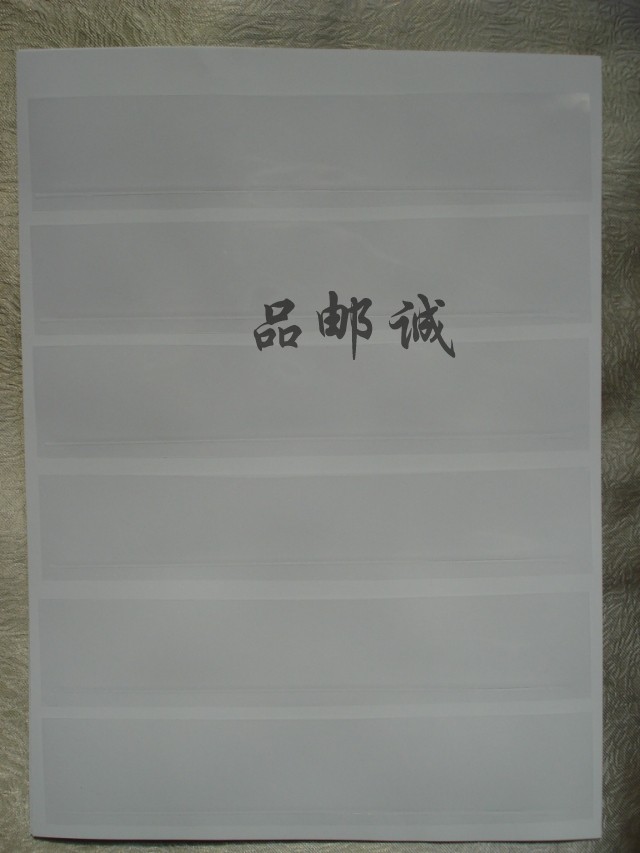 品邮诚